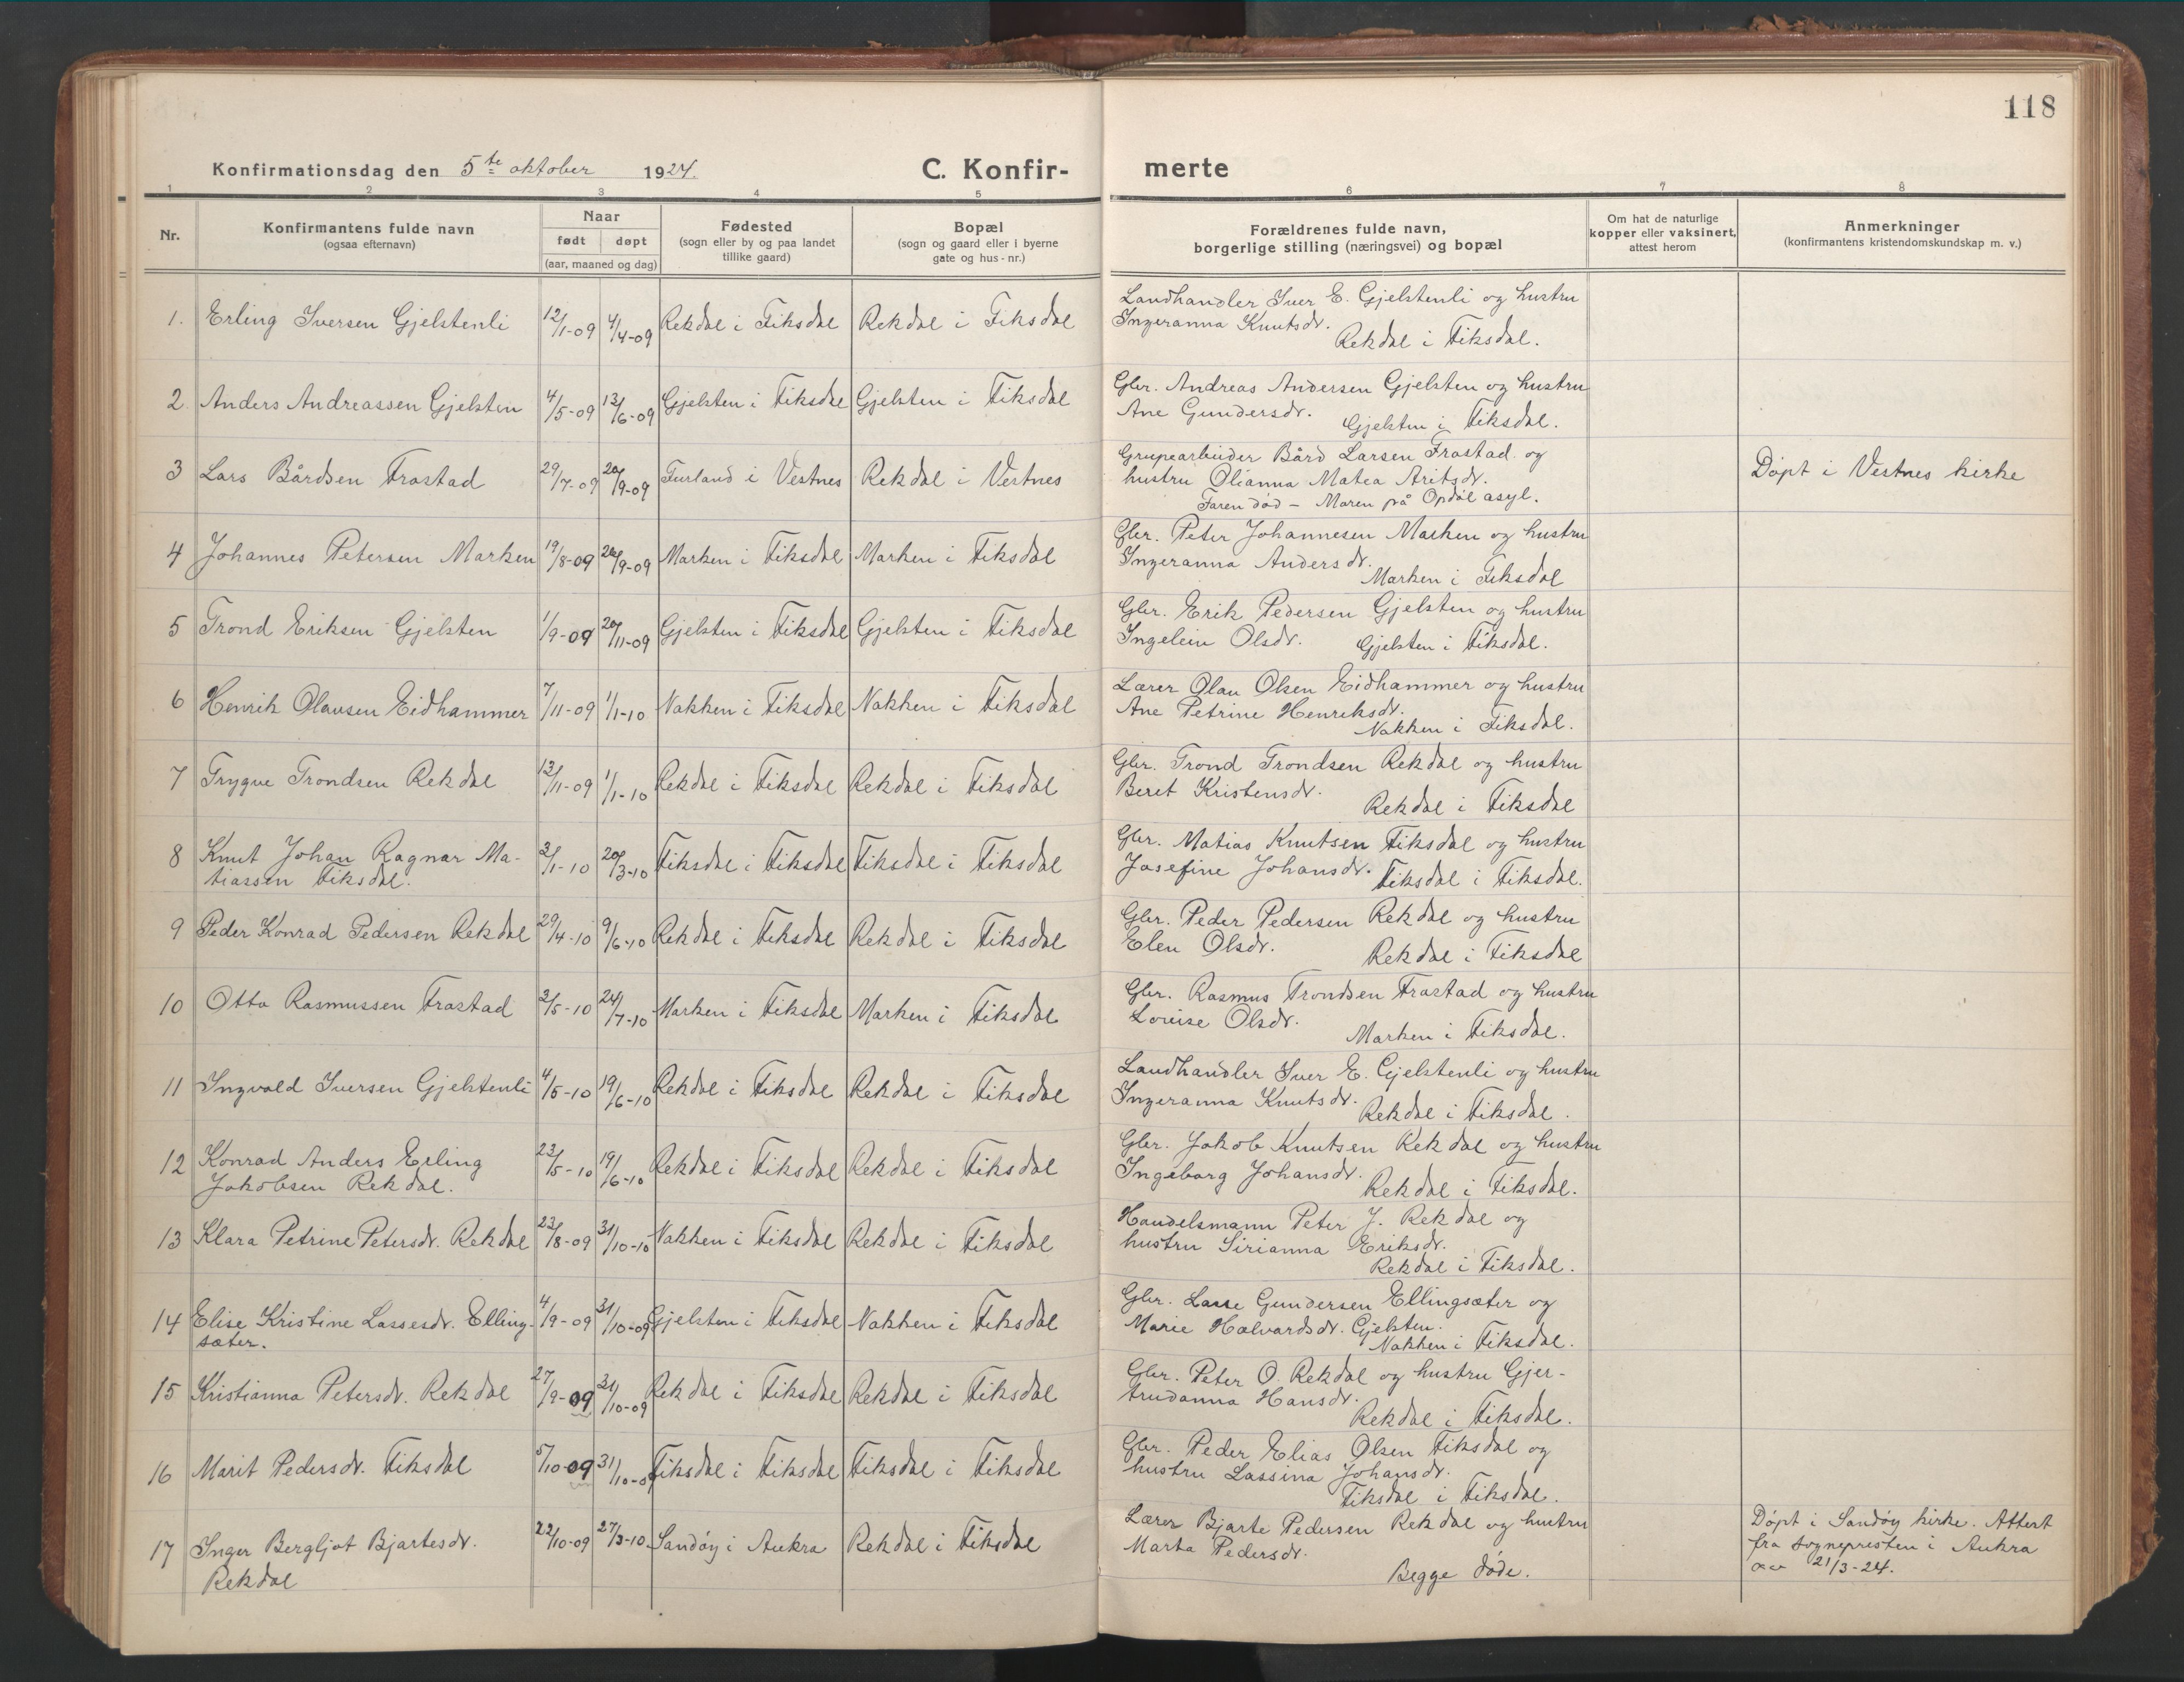 118
Konfirmationsdag den 5te oktober 1924. C. Konfir- merte
1 2 3 4 5 6 7 8
Nr. | Konfirmantens fulde navn (ogsaa efternavn) | Naar født | døpt (aar, maaned og dag) | Fødested (sogn eller by og paa landet tillike gaard) | Bopæl (sogn og gaard eller i byerne gate og hus-nr.) | Forældrenes fulde navn, borgerlige stilling (næringsvei) og bopæl | Om hat de naturlige kopper eller vaksinert, attest herom | Anmerkninger (konfirmantens kristendomskundskap m. v.)
1. Erling Iversen Gjelstenli 12/1-09 4/4-09 Rekdal i Fiksdal Rekdal i Fiksdal Landhandler Iver E. Gjelstenli og hustru
Ingeranna Knutsdr.
Rekdal i Fiksdal.
2 Anders Andreassen Gjelsten 4/5-09 13/6-09 Gjelsten i Fiksdal Gjelsten i Fiksdal Gbr. Andreas Andersen Gjelsten og hustru
Ane Gundersdr.
Gjelsten i Fiksdal.
3 Lars Bårdsen Frostad 29/7-09 20/9-09 Furland i Vestnes Rekdal i Vestnes Grupearbeider Bård Larsen Frostad og
hustru Olianna Matea Aritsdr.
Faren død - Moren på Opdøl asyl.
Døpt i Vestnes kirke
4 Johannes Petersen Marken 19/8-09 26/9-09 Marken i Fiksdal Marken i Fiksdal Gbr. Peter Johannesen Marken og hustru
Ingeranna Andersdr.
Marken i Fiksdal
5 Trond Eriksen Gjelsten 1/9-09 20/11-09 Gjelsten i Fiksdal Gjelsten i Fiksdal Gbr. Erik Pedersen Gjelsten og hustru
Ingelein Olsdr. Gjelsten i Fiksdal.
6 Henrik Olausen Eidhammer 7/11-09 1/1-10 Nakken i Fiksdal Nakken i Fiksdal Lærer Olau Olsen Eidhammer og hustru
Ane Petrine Henriksdr.
Nakken i Fiksdal.
7 Trygve Trondsen Rekdal 13/11-09 1/1-10 Rekdal i Fiksdal Rekdal i Fiksdal Gbr. Trond Trondsen Rekdal og hustru
Beret Kristensdr.
Rekdal i Fiksdal
8 Knut Johan Ragnar Ma-
tiassen Fiksdal. 3/1-10 20/3-10 Fiksdal i Fiksdal Fiksdal i Fiksdal Gbr. Matias Knutsen Fiksdal og hustru
Josefine Johansdr. Fiksdal i Fiksdal.
9 Peder Konrad Pedersen Rekdal 29/4-10 9/6-10 Rekdal i Fiksdal Rekdal i Fiksdal Gbr. Peder Pedersen Rekdal og hustru
Elen Olsdr. Rekdal i Fiksdal
10 Otto Rasmussen Frostad 3/5-10 24/7-10 Marken i Fiksdal Marken i Fiksdal Gbr. Rasmus Trondsen Frostad og hustru
Louise Olsdr.
Marken i Fiksdal.
11 Ingvald Iversen Gjelstenli 4/5-10 19/6-10 Rekdal i Fiksdal Rekdal i Fiksdal Landhandler Iver E. Gjelstenli og hustru
Ingeranna Knutsdr. Rekdal i Fiksdal.
12 Konrad Anders Erling
Jakobsen Rekdal. 23/5-10 19/6-10 Rekdal i Fiksdal Rekdal i Fiksdal Gbr. Jakob Knutsen Rekdal og hustru
Ingeborg Johansdr. Rekdal i Fiksdal.
13 Klara Petrine Petersdr. Rekdal 23/8-09 31/10-10 Nakken i Fiksdal Rekdal i Fiksdal Handelsmann Peter J. Rekdal og
hustru Sirianna Eriksdr.
Rekdal i Fiksdal.
14 Elise Kristine Lassesdr. Elling-
sæter. 4/9-09 31/10-09 Gjelsten i Fiksdal Nakken i Fiksdal Gbr. Lasse Gundersen Ellingsæter og
Marie Halvardsdr. Gjelsten.
Nakken i Fiksdal.
15 Kristianna Petersdr. Rekdal 27/9-09 31/10-09 Rekdal i Fiksdal Rekdal i Fiksdal Gbr. Peter O. Rekdal og hustru Gjer-
trudanna Hansdr.
Rekdal i Fiksdal.
16 Marit Pedersdr. Fiksdal 5/10-09 31/10-09 Fiksdal i Fiksdal Fiksdal i Fiksdal Gbr. Peder Elias Olsen Fiksdal og
hustru Lassina Johansdr.
Fiksdal i Fiksdal.
17 Inger Bergljot Bjartesdr.
Rekdal 22/10-09 27/3-10 Sandøy i Aukra Rekdal i Fiksdal Lærer Bjarte Pedersen Rekdal og hustru
Marta Pedersdr.
Begge døde.
Døpt i Sandøy kirke. Attest
fra sognepresten i Aukra
av 21/3-24.